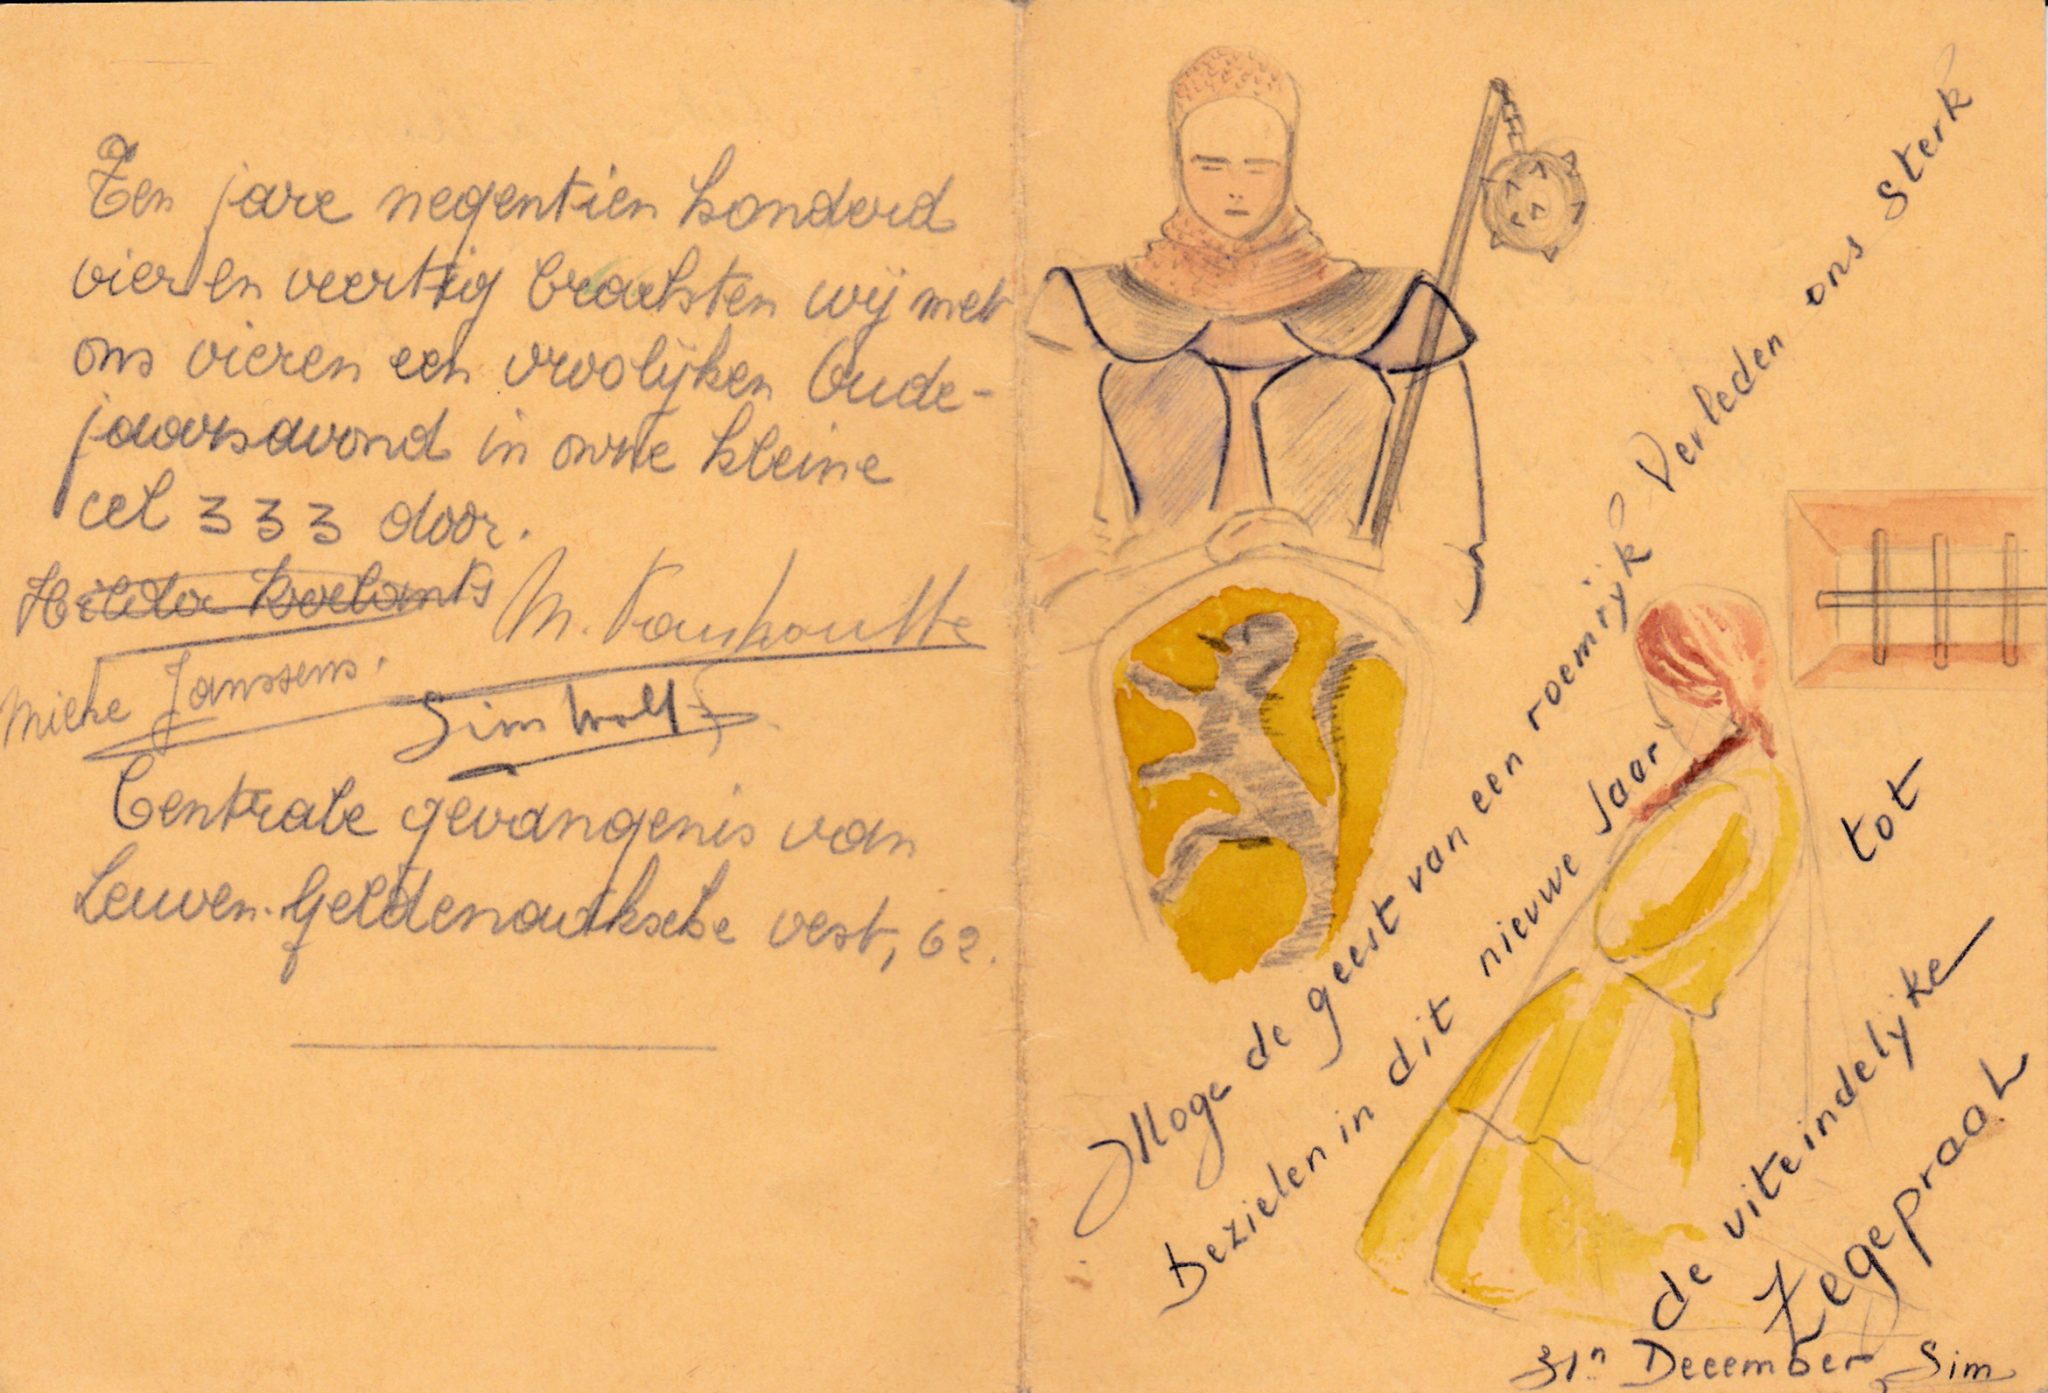 Ten jare negentien honderd
vier en veertig brachten wij met
ons vieren een vroolijken Oude-
jaarsavond in onze kleine
cel 333 door.
Hilda Roelants
M. Vanhoutte
Mieke Janssens.
Sim Wolfs
Centrale gevangenis van
Leuven. Geldenaaksche vest, 62.
Moge de geest van een roemrijk Verleden ons sterk
Bezielen in dit nieuwe Jaar
tot
de uiteindelijke
Zegepraal
31n December Sim